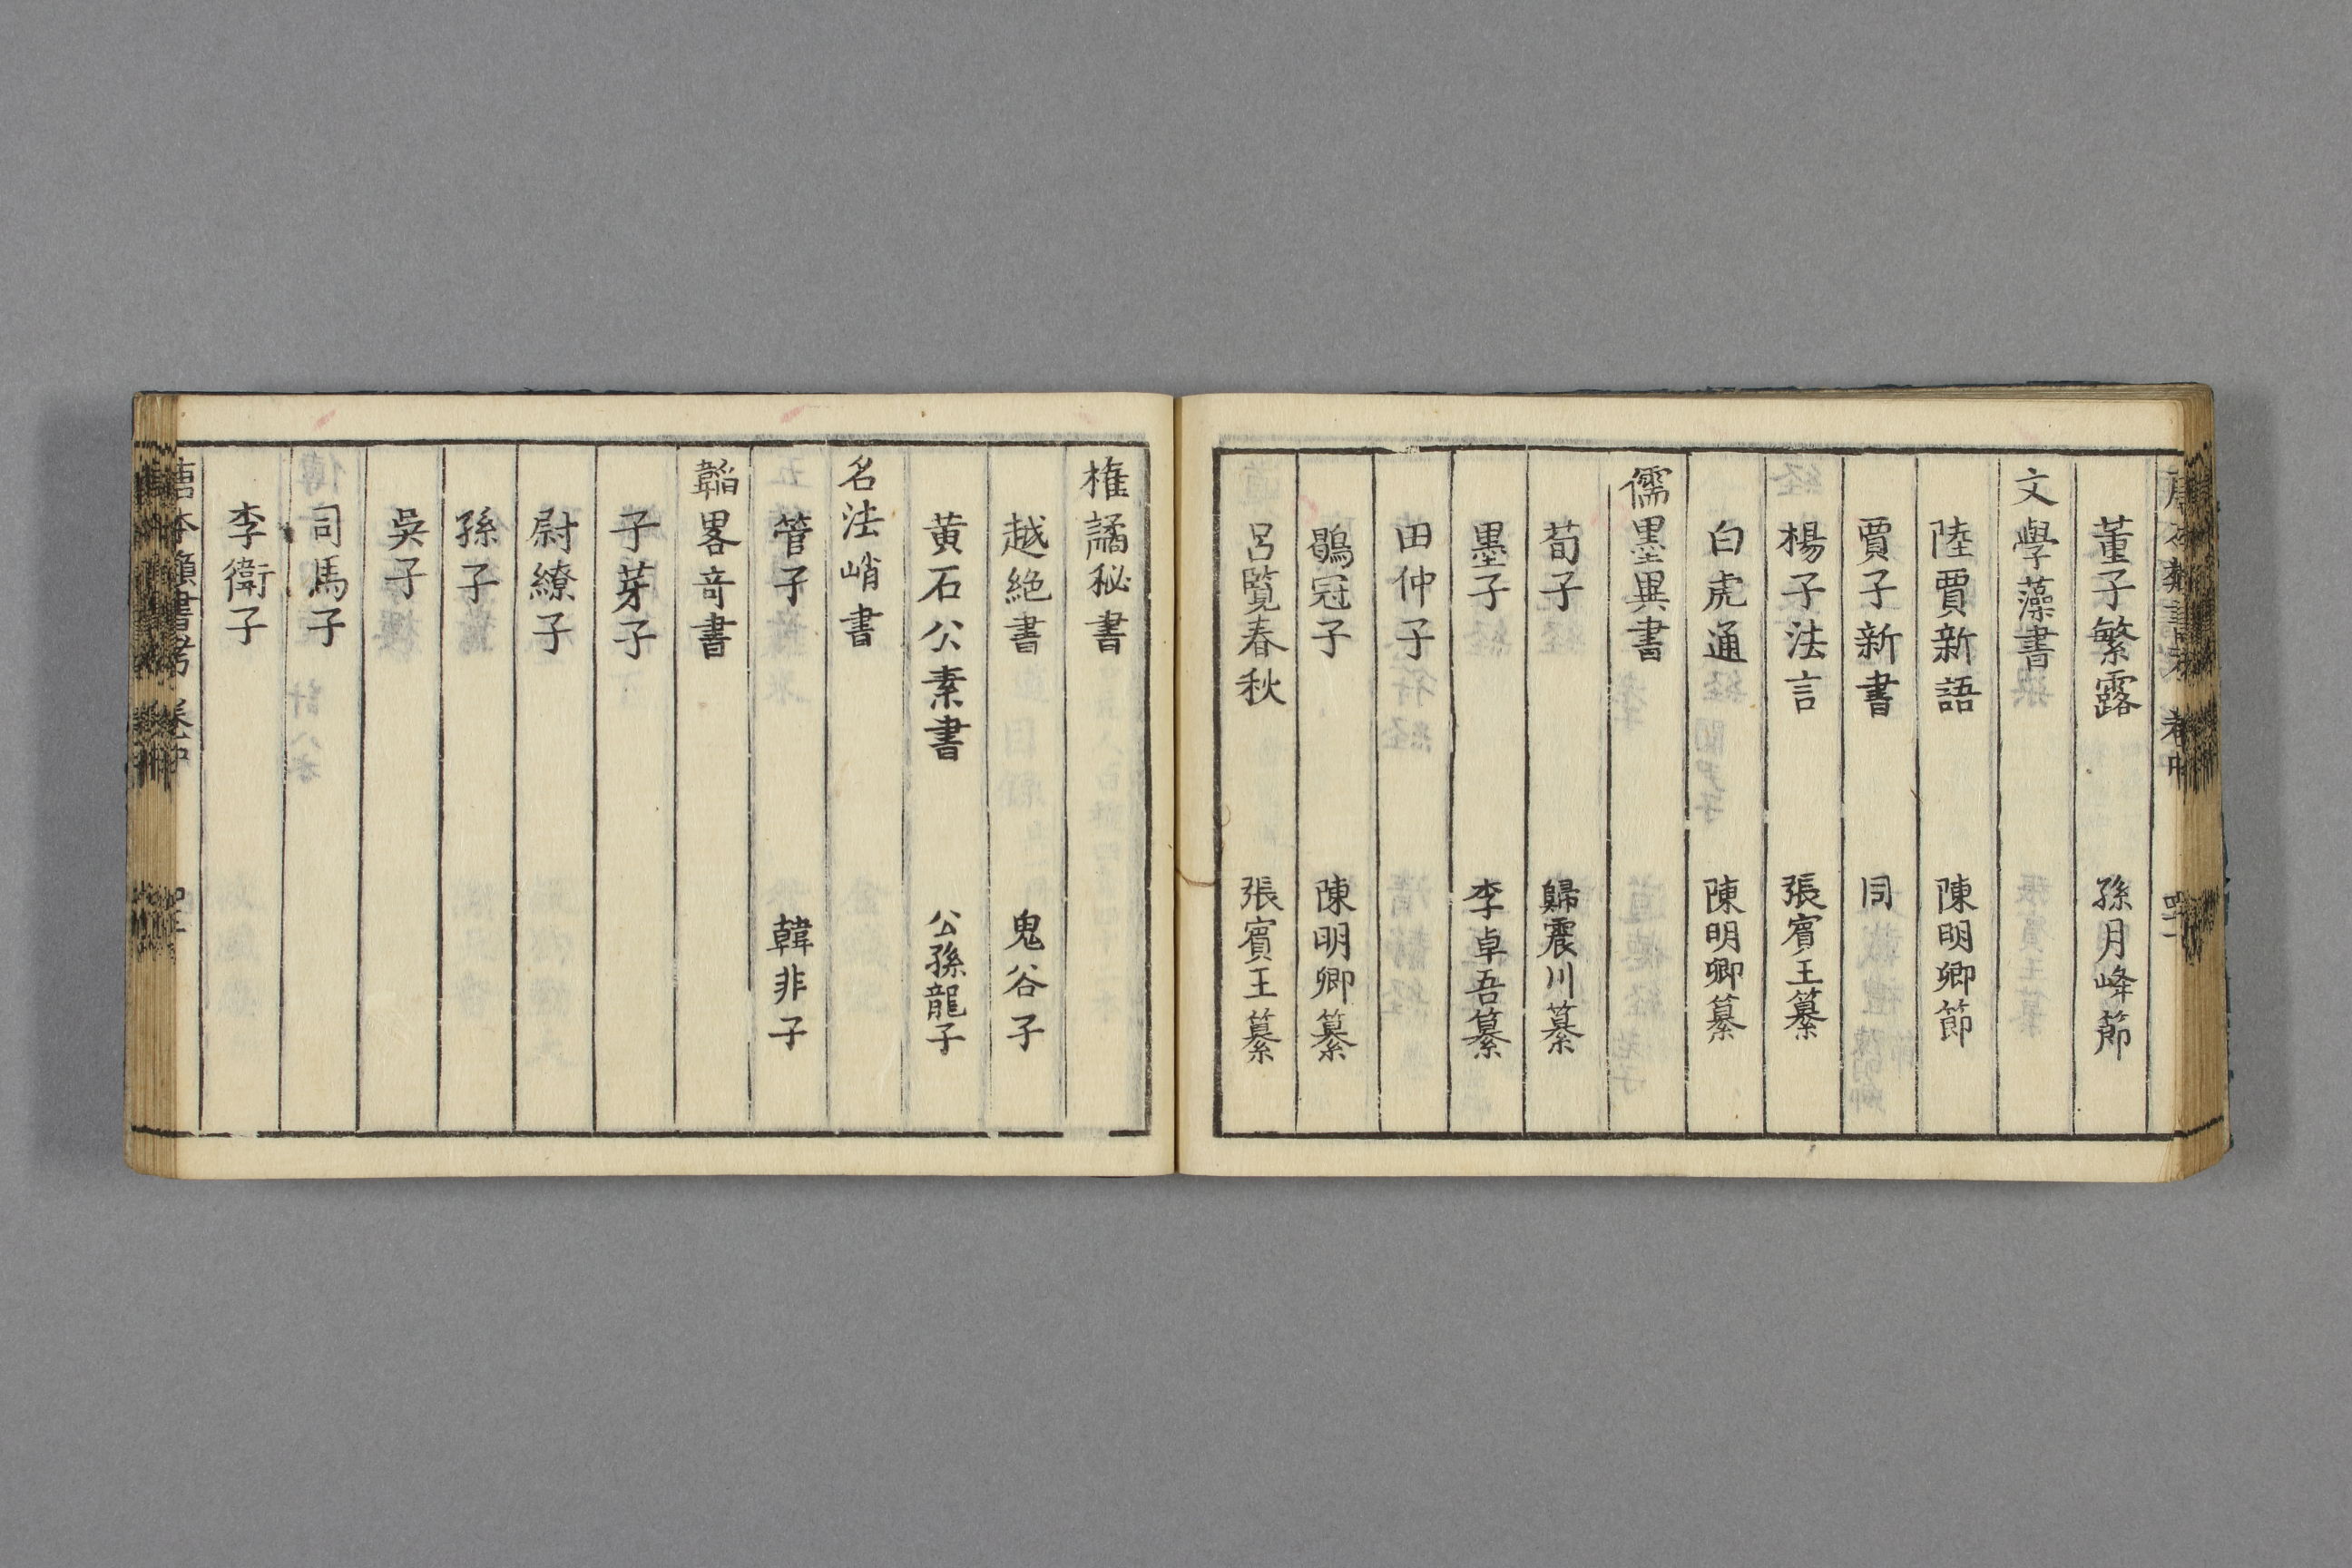 董子繁露 孫月峰節
文學藻書
陸賈新語 陳明卿節
賈子新書 同
楊子法言 張賓王纂
白虎通 陳明卿纂
儒墨異書
荀子 歸震川纂
墨子 李卓吾纂
田仲子
鶡冠子 陳明卿纂
呂覧春秋 張賓王纂
権譎秘書
越絶書 鬼谷子
黄石公素書 公孫龍子
名法峭書
管子 韓非子
韜畧竒書
子芽子
尉繚子
孫子
吳子
司馬子
李衛子
唐本類書考 卷中